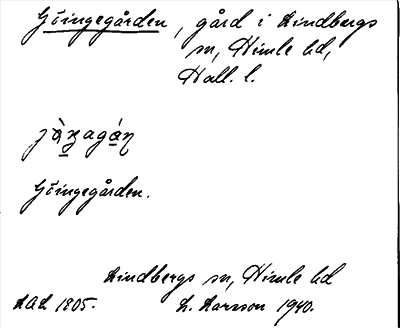 Göingegården, gård i Lindbergs
sn, Himle hd,
Hall. l.
Göingegården.
Lindbergs sn, Himle hd
LAL 1805. L. Larsson 1940.